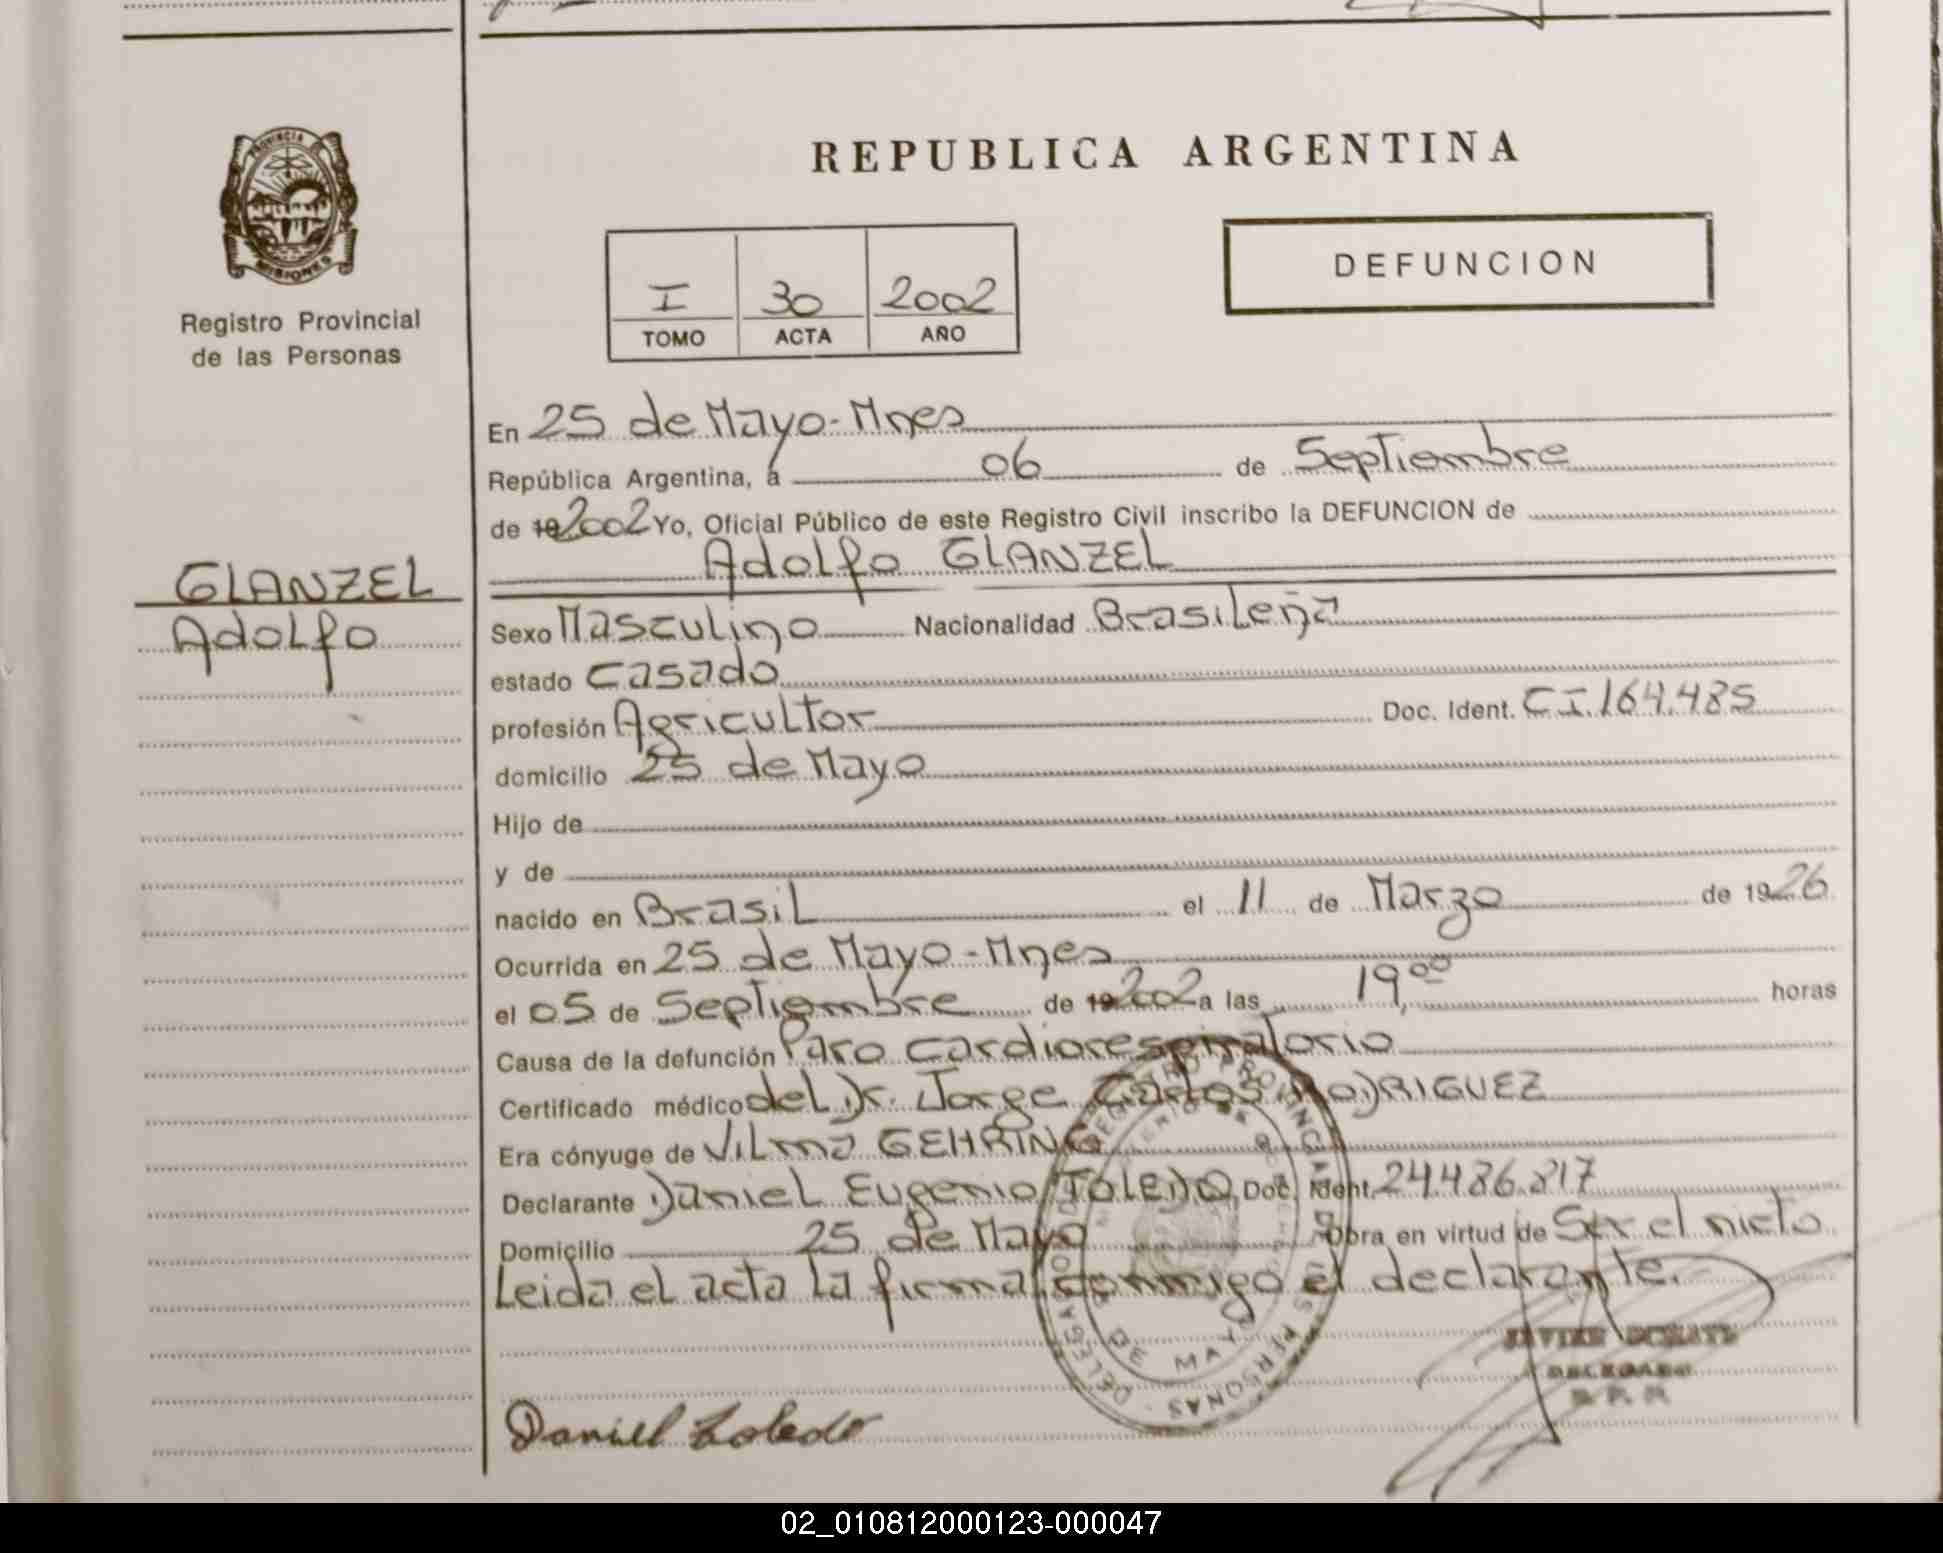 PROVINCIA DE
MISIONES
Registro Provincial
de las Personas
REPUBLICA ARGENTINA
I 30 2002
TOMO ACTA AÑO
DEFUNCION
En 25 de Mayo-Mnes
República Argentina, a 06 de Septiembre
de 19 2002 Yo, Oficial Público de este Registro Civil inscribo la DEFUNCION de
Adolfo GLANZEL
GLANZEL
Adolfo
Sexo Masculino Nacionalidad Brasileña
estado Casado
profesión Agricultor Doc. Ident. CI.164.485
domicilio 25 de Mayo
Hijo de
y de
nacido en Brasil el 11 de Marzo de 1926
Ocurrida en 25 de Mayo-Mnes
el 05 de Septiembre de 19 2002 a las 19,00 horas
Causa de la defunción Paro cardiorespiratorio
Certificado médico del Dr. Jorge Carlos RODRIGUEZ
Era cónyuge de Vilma GEHRING
Declarante Daniel Eugenio TOLEDO Doc. Ident. 24.486.817
Domicilio 25 de Mayo Obra en virtud de Ser el nieto
Leida el acta la firma conmigo el declarante.
JAVIER
DELEGADO
R. P. P.
DE MAYO
Daniel Toledo
02_010812000123-000047